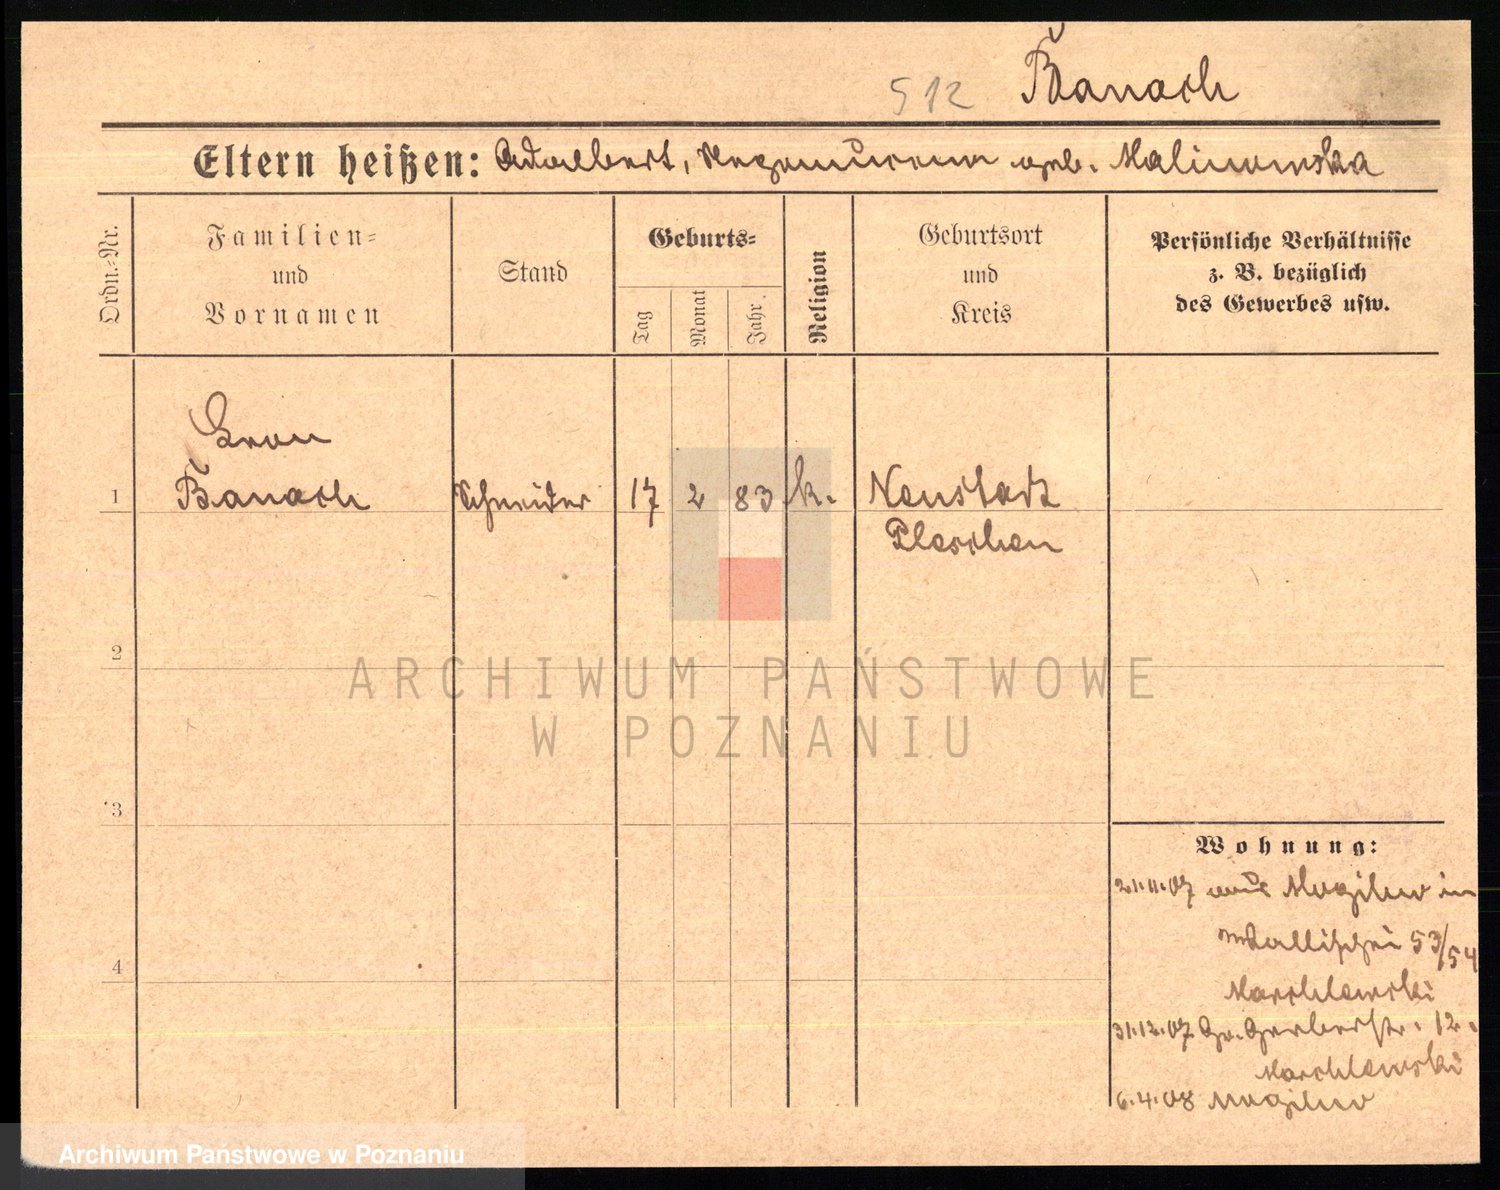 512 Banach
Eltern heißen: Adalbert, Nepomucena geb. Malinowska
Ordn.-Nr.
Familien-
und
Vornamen
Stand
Geburts-
Tag
Monat
Jahr.
Religion
Geburtsort
und
Kreis
Persönliche Verhältnisse
z. B. bezüglich
des Gewerbes usw.
Leon
1 Banach Schneider 17 2 83 k. Neustadt
Pleschen
2
3
4
Wohnung:
21.11.07 aus Mogilno in
Wallischei 53/54
Marchlewski
31.12.07 Gr. Gerberstr. 12.
Marchlewski
6.4.08 Mogilno
ARCHIWUM PAŃSTWOWE
W POZNANIU
Archiwum Państwowe w Poznaniu